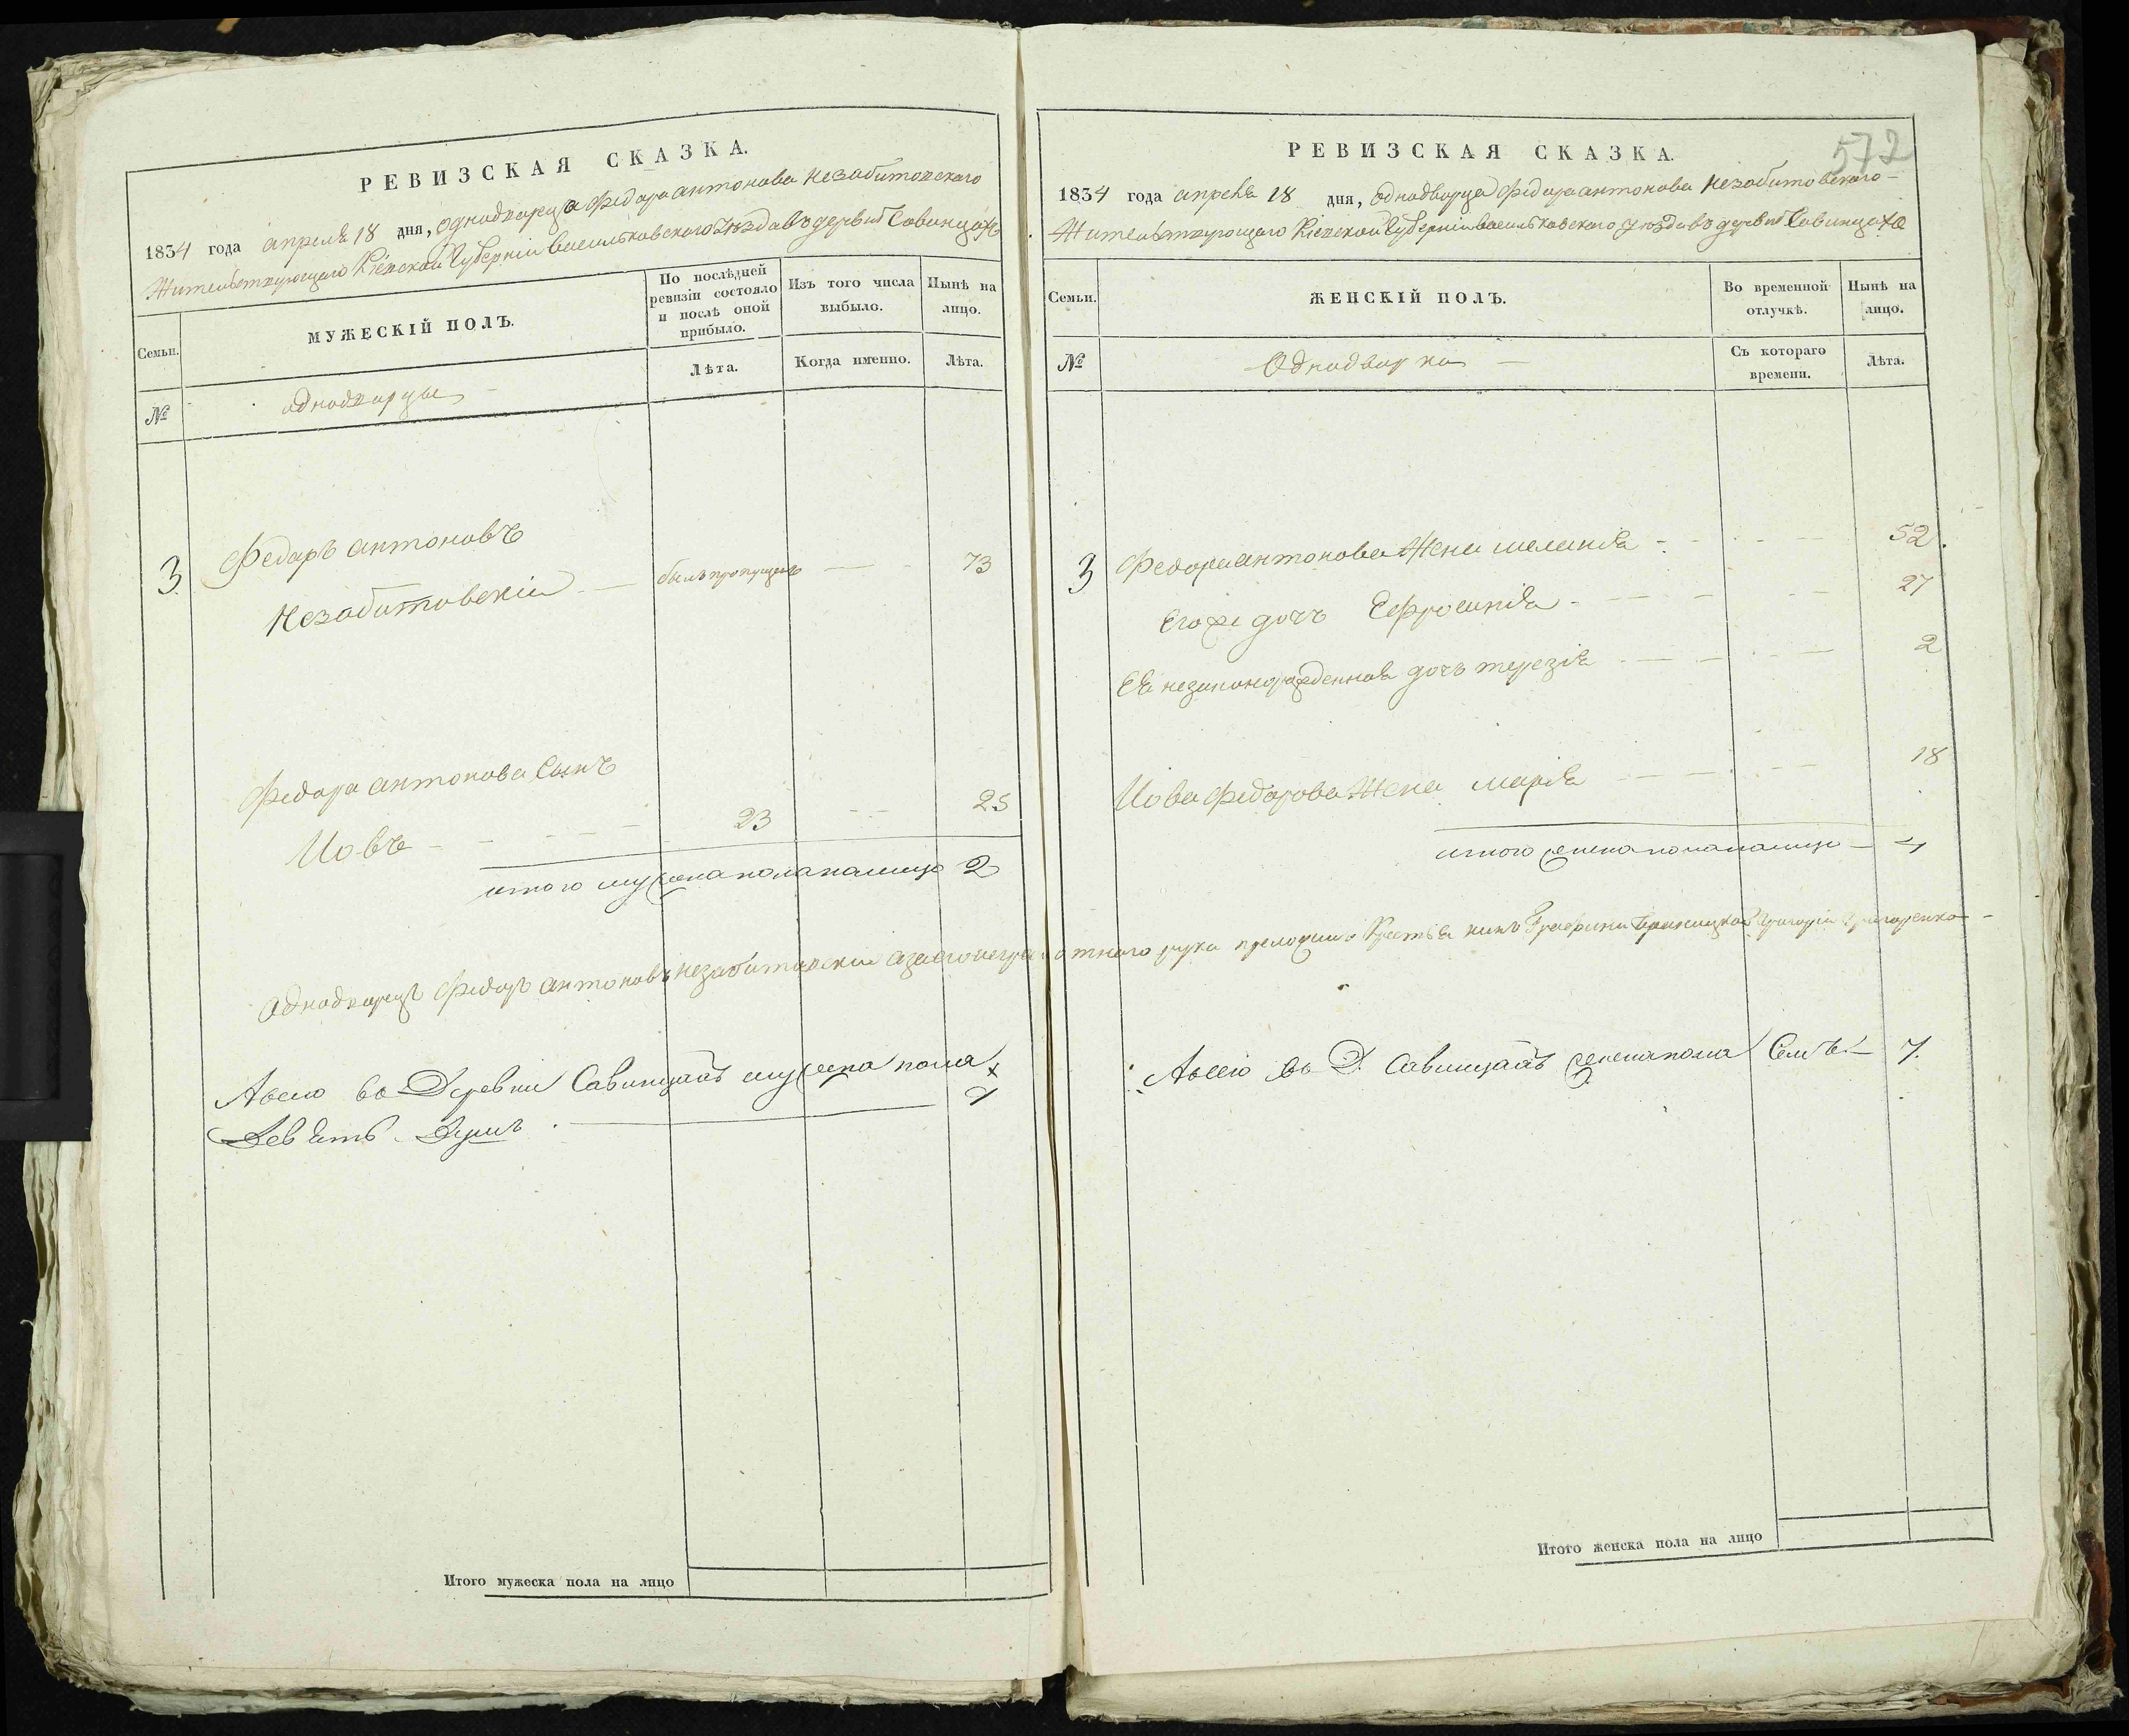 РЕВИЗСКАЯ СКАЗКА.
1834 года апреля 18 дня, однодворца Федора антонова Незабитовского
Жительствующего Кіевской Губерніи васильковского Уезда въ деревне Савинцахъ
Семьи.
МУЖЕСКІЙ ПОЛЪ.
По послѣдней ревизіи состояло и послѣ оной прибыло.
Изъ того числа выбыло.
Нынѣ на лицо.
№
однодворцы
Лѣта.
Когда именно.
Лѣта.
3 Федоръ антоновъ
Незабитовскій былъ пропущенъ 73
Федора антонова Сынъ
Иовъ 23 25
итого мужеска пола на лицо 2
Однодворецъ Федоръ антоновъ незабитовский а за его неграмотного руку приложилъ Крестьянинъ Графини Браницкой Григорій Григоренко
А всего во Деревни Савинцахъ мужеска пола
Девять Душъ 9
Итого мужеска пола на лицо
572
РЕВИЗСКАЯ СКАЗКА.
1834 года апреля 18 дня, однодворца Федора антонова Незабитовского
Жительствующего Кіевской Губерніи васильковского Уезда въ деревне Савинцахъ
Семьи.
ЖЕНСКІЙ ПОЛЪ.
Во временной отлучкѣ.
Нынѣ на лицо.
№
Однодворки
Съ котораго времени.
Лѣта.
3 Федора антонова Жена меланія 52
Его же дочь Ефросинія 27
Ея незаконорожденная дочь терезія 2
Иова Федорова Жена марія 18
итого женска пола на лицо 4
А всего во Д. Савинцахъ женска пола Семь 7.
Итого женска пола на лицо